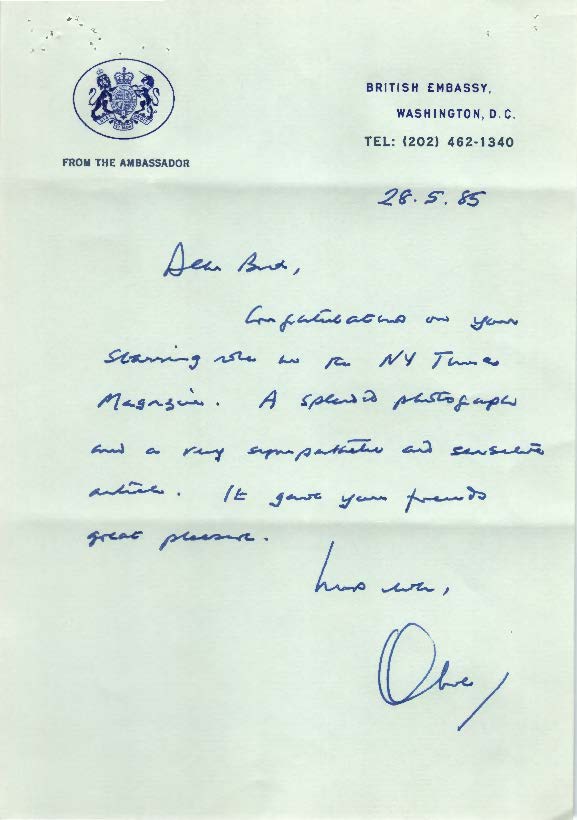 BRITISH EMBASSY,
WASHINGTON, D.C.
TEL: (202) 462-1340
FROM THE AMBASSADOR
28.5.85
Dear Bud,
Congratulations on your
starring role in the NY Times
Magazine. A splendid photograph
and a very sympathetic and sensitive
article. It gave your friends
great pleasure.
Oliver